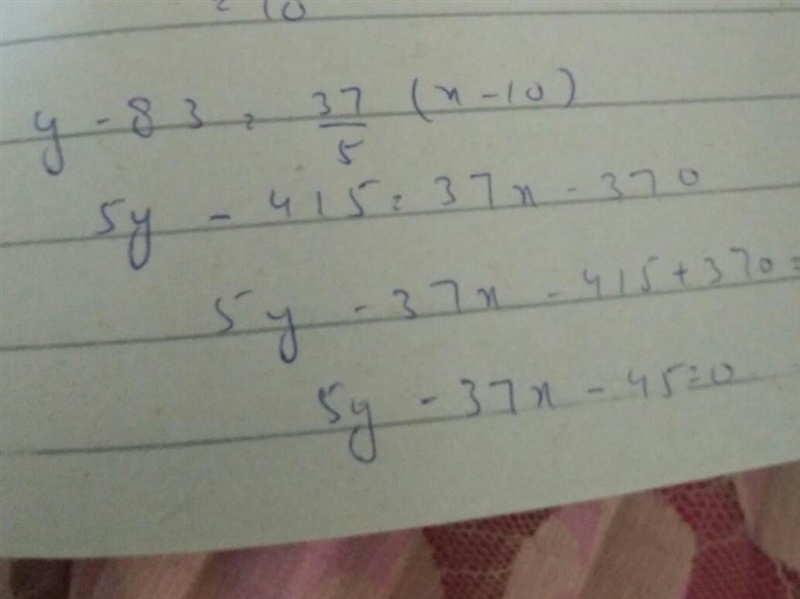 = 10
y - 83 = 37/5 (x - 10)
5y - 415 = 37x - 370
5y - 37x - 415 + 370 =
5y - 37x - 45 = 0